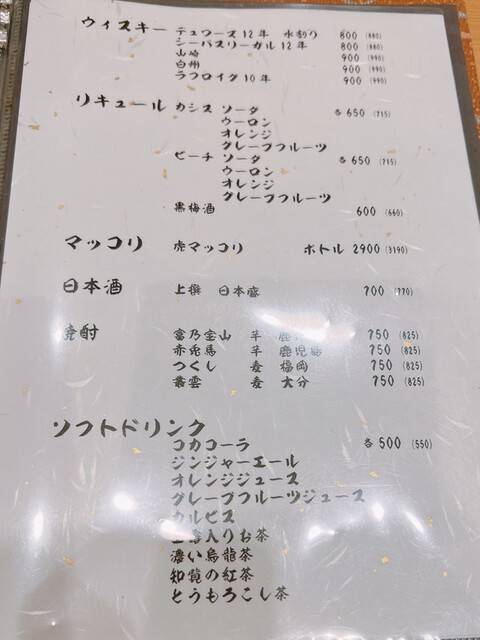 ウィスキー デュワーズ12年 水割り 800 (880)
シーバスリーガル12年 800 (880)
山崎 900 (990)
白州 900 (990)
ラフロイグ10年 900 (990)
リキュール カシス ソーダ 各650 (715)
ウーロン
オレンジ
グレープフルーツ
ピーチ ソーダ 各650 (715)
ウーロン
オレンジ
グレープフルーツ
黒梅酒 600 (660)
マッコリ 虎マッコリ ボトル 2900 (3190)
日本酒 上撰 日本盛 700 (770)
焼酎 富乃宝山 芋 750 (825)
赤兎馬 芋 鹿児島 750 (825)
つくし 麦 福岡 750 (825)
麦 大分 750 (825)
ソフトドリンク
コカコーラ 各500 (550)
ジンジャーエール
オレンジジュース
グレープフルーツジュース
カルピス
入りお茶
濃い烏龍茶
知覧の紅茶
とうもろこし茶